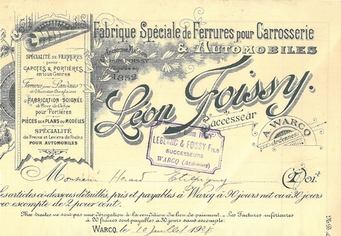 Fabrique Spéciale de Ferrures pour Carrosserie
& AUTOMOBILES
SPÉCIALITÉ DE FERRURES
pour
CAPOTES & PORTIÈRES
en tous Genres
FABRICATION SOIGNÉE
pour Portières
PIÈCES sur PLANS ou MODÈLES
SPÉCIALITÉ
de Freins et Leviers de Freins
POUR AUTOMOBILES
1852
Léon Goissy.
Successeur
A. WARCQ
LEBLANC & FOSSY Fils
SUCCESSEURS
WARCQ (Ardennes)
Monsieur
Doit
Les articles ci-dessous détaillés, pris et payables à Warcq à 90 jours net ou à 30 jours
avec escompte de 2 pour cent.
Nos traites ne sont pas une dérogation à la condition du lieu de paiement. _ Les Factures inférieures
à 50 francs sont payables à 30 jours sans escompte.
WARCQ, le 10 Juillet